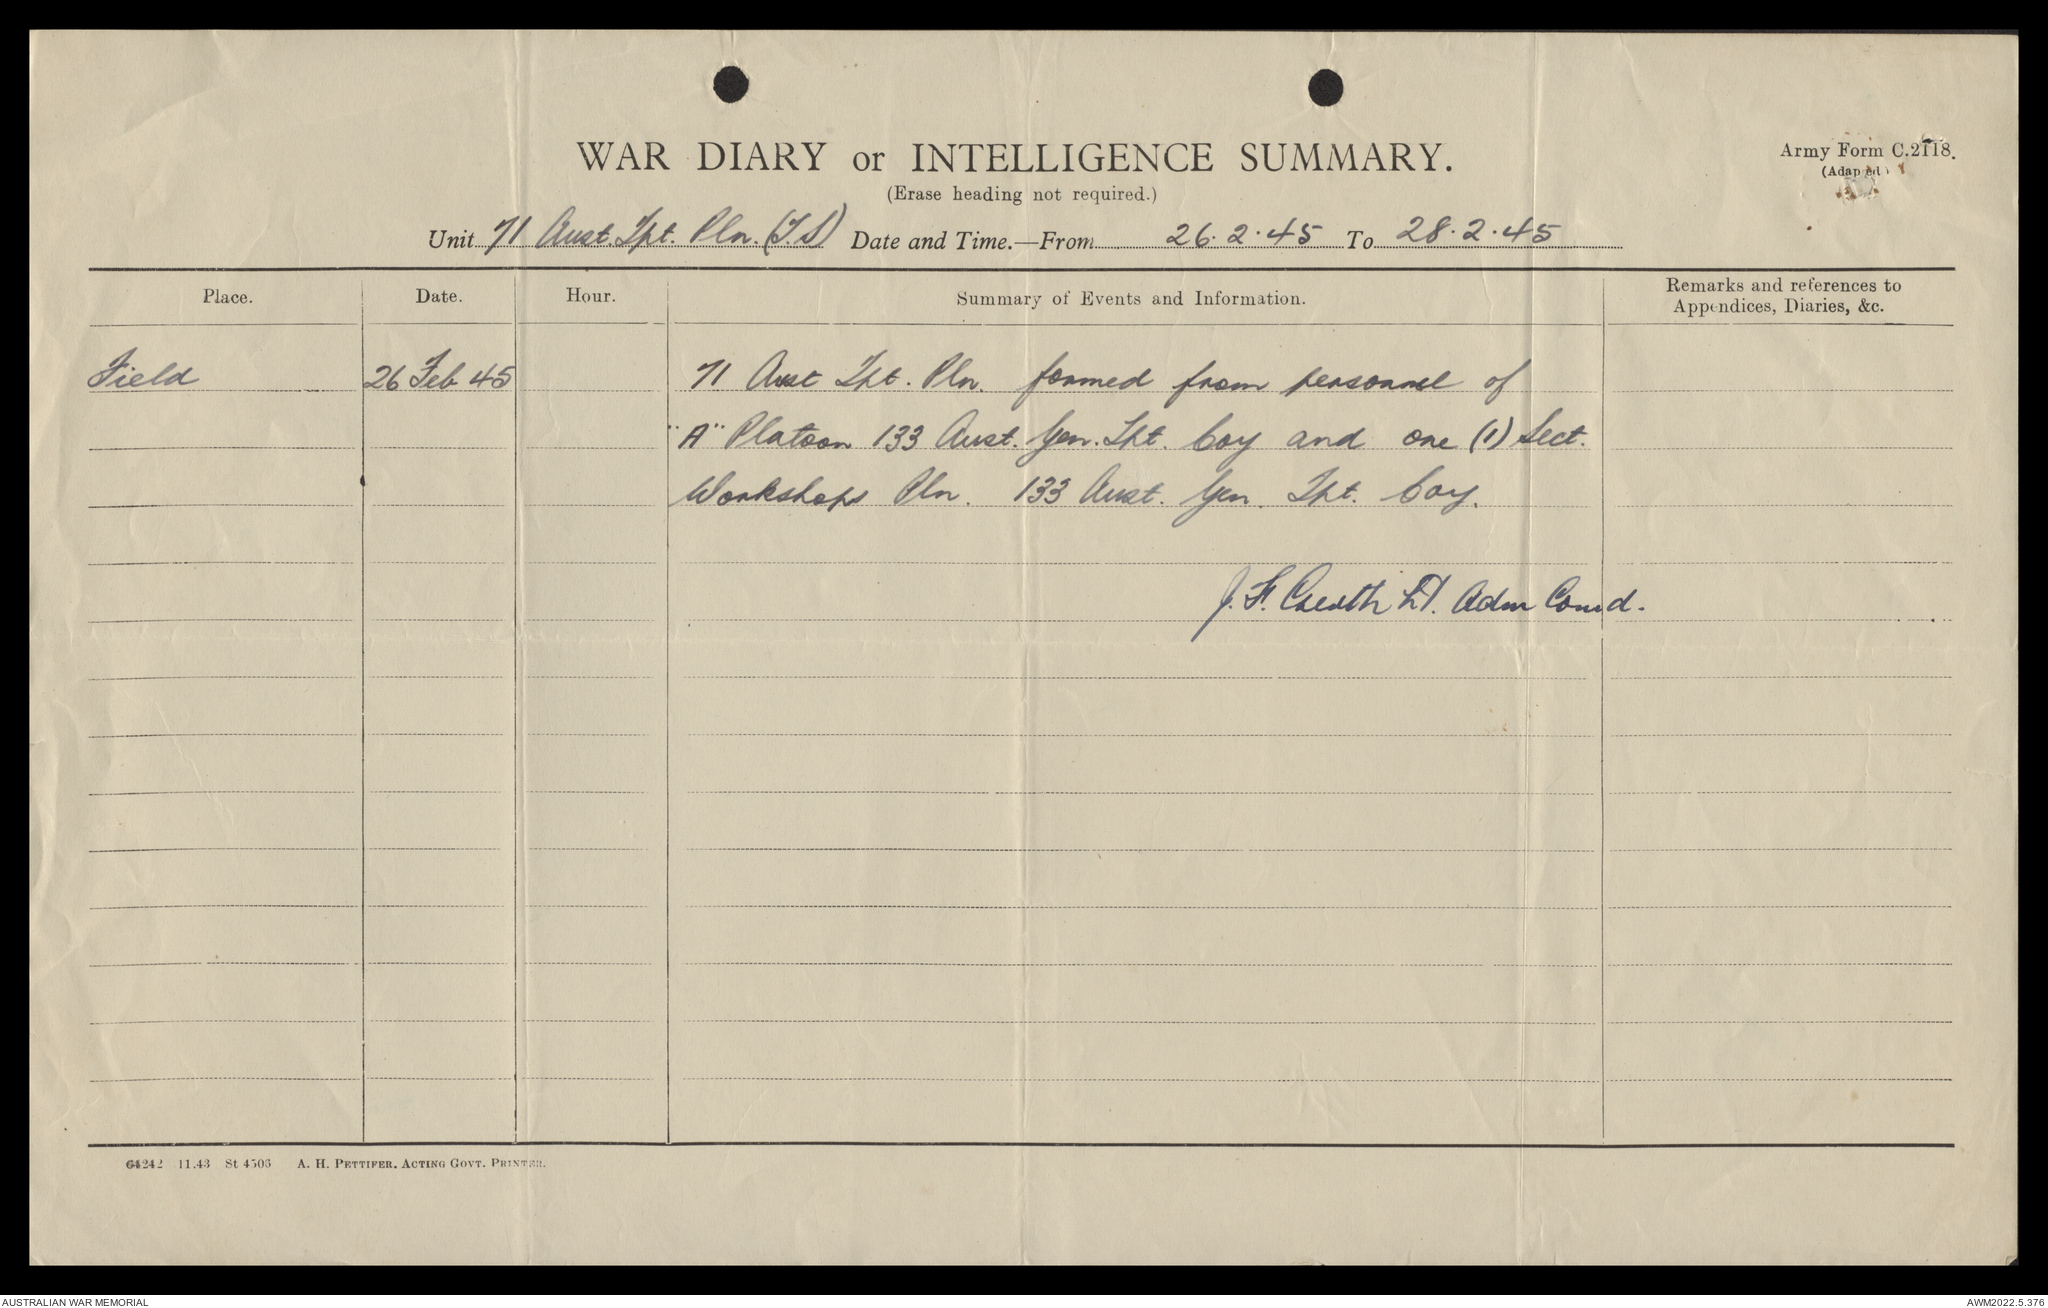 WAR DIARY or INTELLIGENCE SUMMARY.
Army Form C.2118.
(Erase heading not required.)
(Adapted)
Unit 71 Aust. Tpt. Pln. (T.S) Date and Time.—From 26.2.45 To 28.2.45
Place. Date. Hour. Summary of Events and Information. Remarks and references to
Appendices, Diaries, &c.
Field 26 Feb 45 71 Aust Tpt. Pln. formed from personnel of
"A" Platoon 133 Aust. Gen. Tpt. Coy and one (1) Sect.
Workshops Pln. 133 Aust. Gen. Tpt. Coy.
J. F. Lt. Adm Comd.
64242 11.43 St 4503 A. H. PETTIFER, ACTING GOVT. PRINTER.
AUSTRALIAN WAR MEMORIAL
AWM2022.5.376